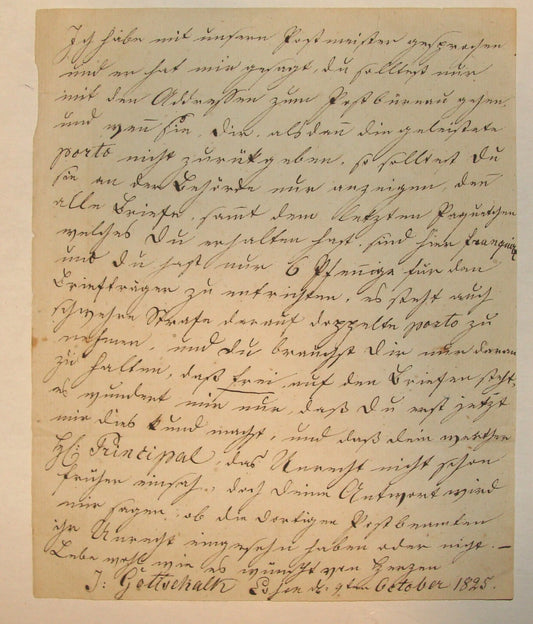 Ich habe mit unsern Postmeister gesprochen
und er hat mir gesagt, du solltest nur
mit den Addressen zum Postbüreau gehen,
und wenn sie Dir alsdenn die geleistete
porto nicht zurükgeben, so solltest Du
sie an der Behörde nur anzeigen, denn
alle Briefe, sammt dem letzten Paquetchen
welches Du erhalten hast, sind hier
und Du hast nur 6 Pfennige für den
Briefträger zu entrichten, es steht auch
schwere Strafe darauf doppelte porto zu
nehmen, und Du brauchst Dir nur daran
zu halten, daß frei auf den Briefen steht,
es wundert mir nur, daß Du erst jetzt
mir dies kund machst, und daß dein werther
H. Principal das Unrecht nicht schon
früher einsah, doch Deine Antwort wird
mir sagen, ob die dortigen Postbeamten
ihr Unrecht eingesehn haben oder nicht. —
Lebe wohl wie es wünscht von Herzen
J: Gottschalk d. 9ten October 1825.